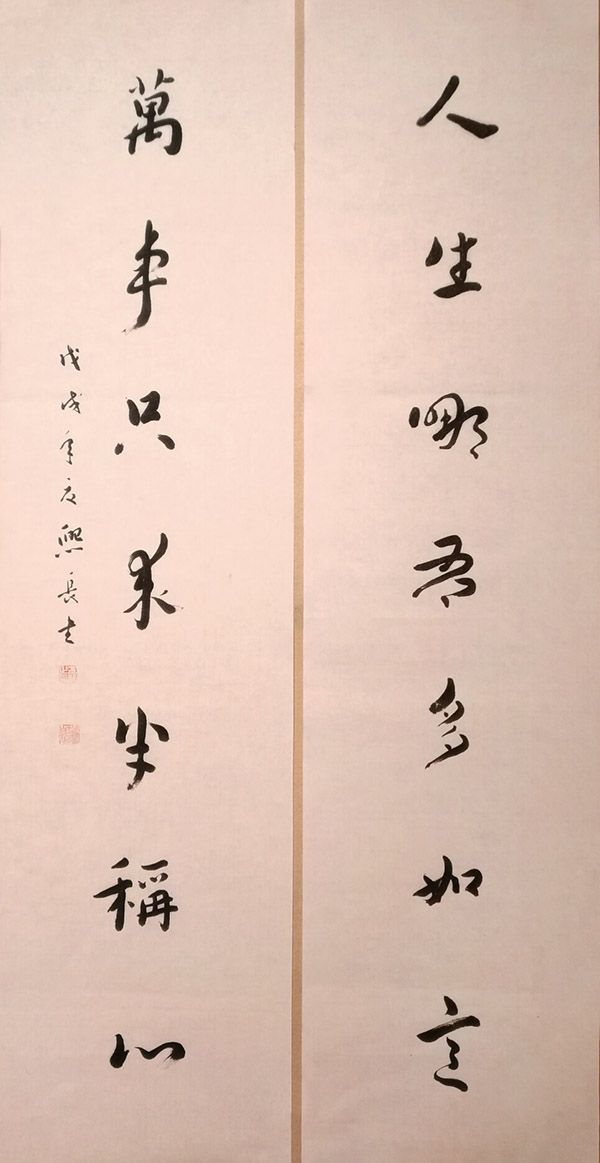 人生哪能多如意
萬事只求半稱心
戊戌年夏熙長書